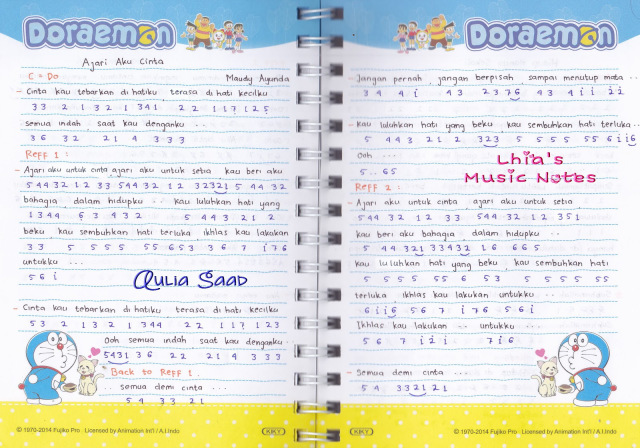 Doraemon
Ajari Aku Cinta
C = Do
Maudy Ayunda
- Cinta kau tebarkan di hatiku terasa di hati kecilku
3 3 2 1 3 2 1 3 4 1 2 2 1 1 7 1 2 5
semua indah, saat kau denganku ...
3 6 3 2 2 1 4 3 3 3
Reff 1 :
- Ajari aku untuk cinta ajari aku untuk setia, kau beri aku
5 4 4 3 2 1 2 3 3 5 4 4 3 2 1 2 3 2 3 2 1 5 4 4 3 2
bahagia, dalam hidupku ... kau luluhkan hati yang
1 3 4 4 6 3 4 3 2 5 4 4 3 2 1 2
beku kau sembuhkan hati terluka, ikhlas kau lakukan
3 3 5 5 5 5 5 5 6 5 3 3 6 7 i 7 6
untukku ...
5 6 i
Aulia Saad
- Cinta kau tebarkan di hatiku terasa di hati kecilku
5 3 2 1 3 2 1 3 4 4 2 2 1 1 7 1 2 3
Ooh semua indah saat kau denganku ...
5 4 3 1 3 6 2 2 2 1 4 3 3 3
Back to Reff 1.
... semua demi cinta ...
5 4 3 3 2 1
© 1970-2014 Fujiko Pro Licensed by Animation Int'l / A.I.Indo
KIKY
Doraemon
- Jangan pernah, jangan berpisah sampai menutup mata ...
3 4 4 i 4 3 2 3 7 6 4 3 4 i i 2 2
- Kau luluhkan hati yang beku kau sembuhkan hati terluka ...
5 4 4 3 2 1 2 3 2 3 5 5 5 5 5 6 i i 6
Ooh ...
5 .. 6 5
Lhia's
Music Notes
Reff 2 :
- Ajari aku untuk cinta ajari aku untuk setia,
5 4 4 3 2 1 2 3 3 5 4 4 3 2 1 2 3 5 1
kau beri aku bahagia, dalam hidupku ...
5 4 4 3 2 1 3 3 4 3 2 1 6 6 6 5
kau luluhkan hati yang beku, kau sembuhkan hati
5 5 5 5 5 5 6 5 3 5 5 5 5 5 5
terluka, ikhlas kau lakukan untukku ...
6 i i 6 5 6 7 i 7 6 5 6 i
Ikhlas kau lakukan ... untukku ...
5 6 7 i 2 i 7 i 6
- Semua demi cinta ...
5 4 3 3 2 1 2 1
© 1970-2014 Fujiko Pro Licensed by Animation Int'l / A.I.Indo
KIKY